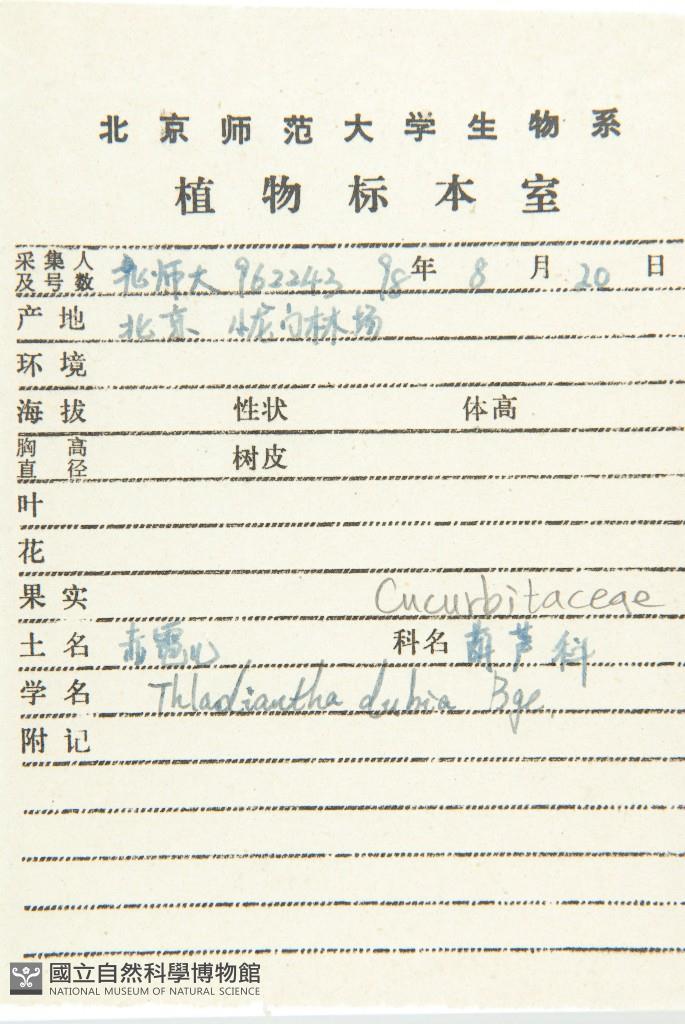 北京师范大学生物系
植物标本室
采集人及号数 北师大 962243 98年 8月 20日
产地 北京 龙门林场
环境
海拔 性状 体高
胸高直径 树皮
叶
花
果实 Cucurbitaceae
土名 赤雹儿 科名 葫芦科
学名 Thladiantha dubia Bge.
附记
國立自然科學博物館
NATIONAL MUSEUM OF NATURAL SCIENCE